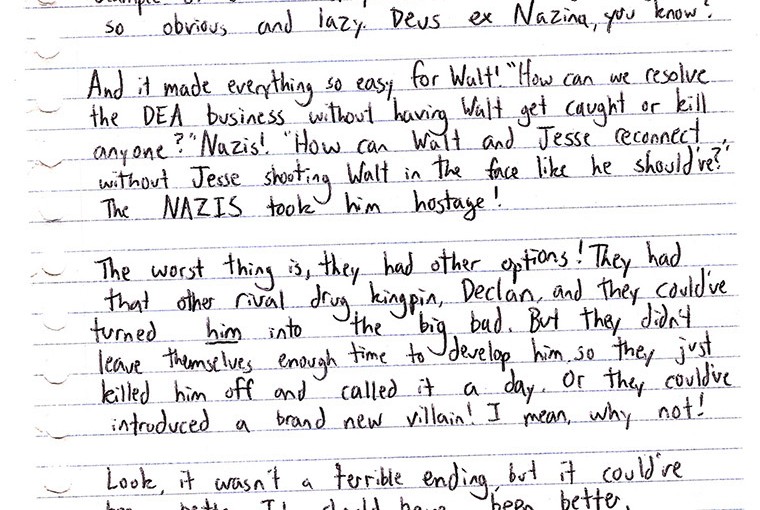 so obvious and lazy. Deus ex Nazina, you know?
And it made everything so easy for Walt! "How can we resolve
the DEA business without having Walt get caught or kill
anyone?" Nazis! "How can Walt and Jesse reconnect
without Jesse shooting Walt in the face like he should've?"
The NAZIS took him hostage!
The worst thing is, they had other options! They had
that other rival drug kingpin, Declan, and they could've
turned him into the big bad. But they didn't
leave themselves enough time to develop him, so they just
killed him off and called it a day. Or they could've
introduced a brand new villain! I mean, why not!
Look, it wasn't a terrible ending, but it could've
been better.